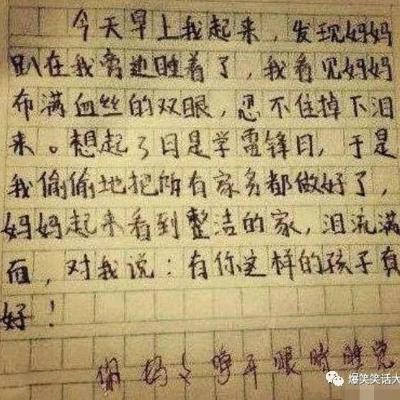 今天早上我起来，发现妈妈
趴在我旁边睡着了，我看见妈妈
布满血丝的双眼，忍不住掉下泪
来。想起3日是学雷锋日，于是
我偷偷地把所有家务都做好了，
妈妈起来看到整洁的家，泪流满
面，对我说：有你这样的孩子真
好！
你妈是睁开眼睛睡觉
爆笑笑话大